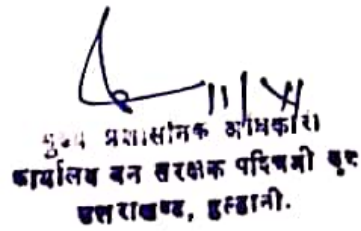 मुख्य प्रशासनिक अधिकारी
कार्यालय वन संरक्षक पश्चिमी वृत्त
उत्तराखण्ड, हल्द्वानी.